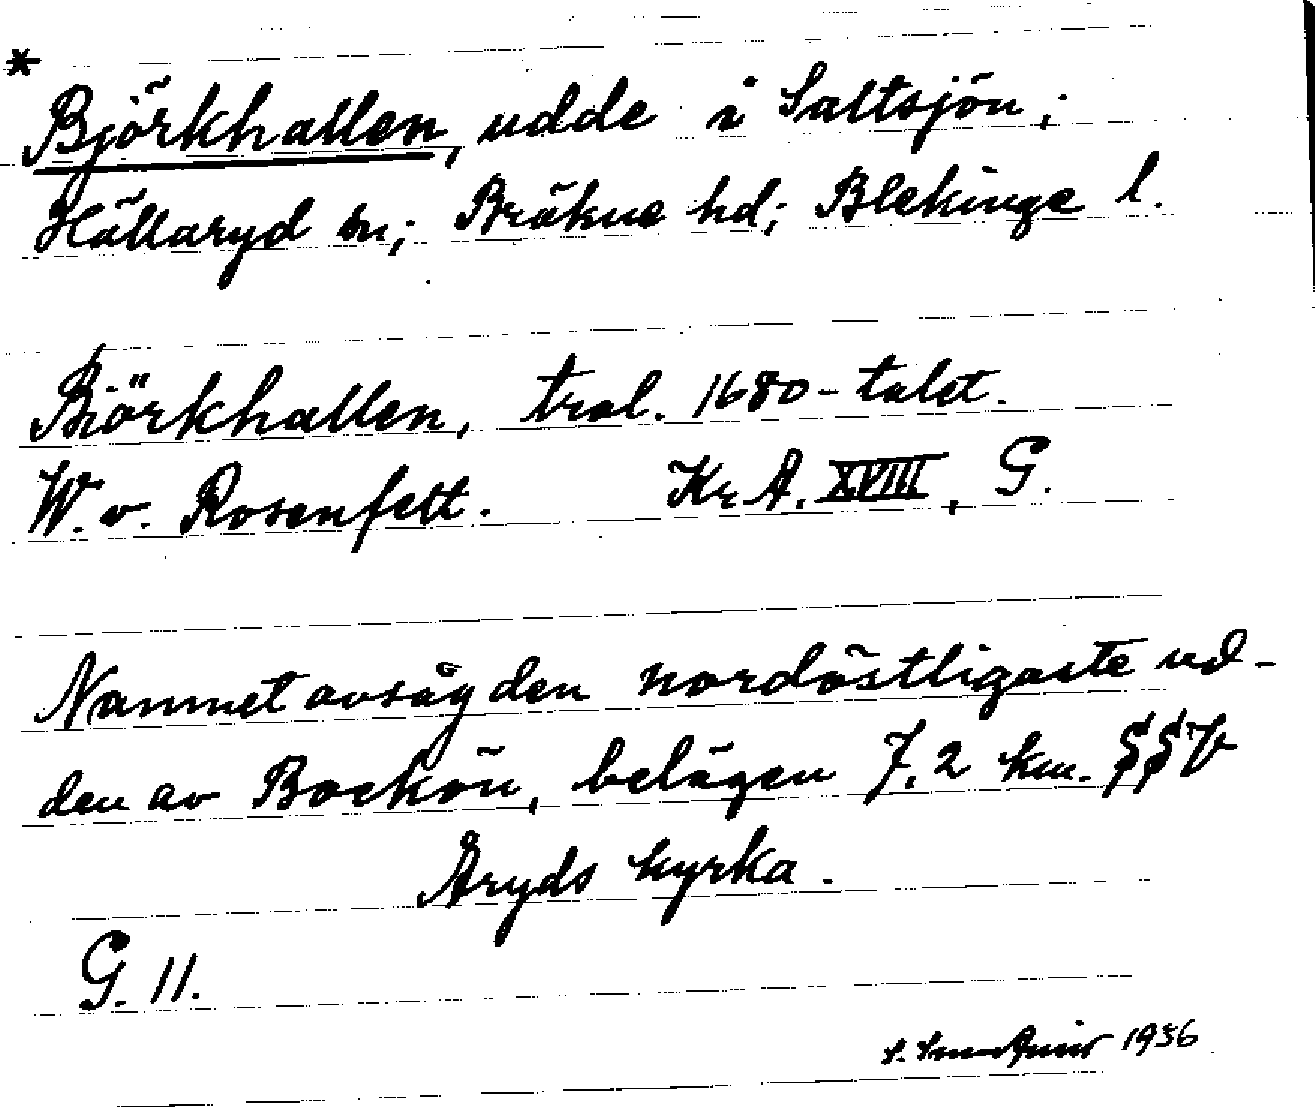 *
Björkhallen, udde i Saltsjön;
Hällaryd sn; Bräkne hd; Blekinge l.
Biörkhallen, trol. 1680-talet.
W. v. Rosenfelt. Kr.A. XVIII, G.
Namnet avsåg den nordöstligaste ud-
den av Bockön, belägen 7,2 km. SSV
Åryds kyrka.
G. 11.
S. 1936